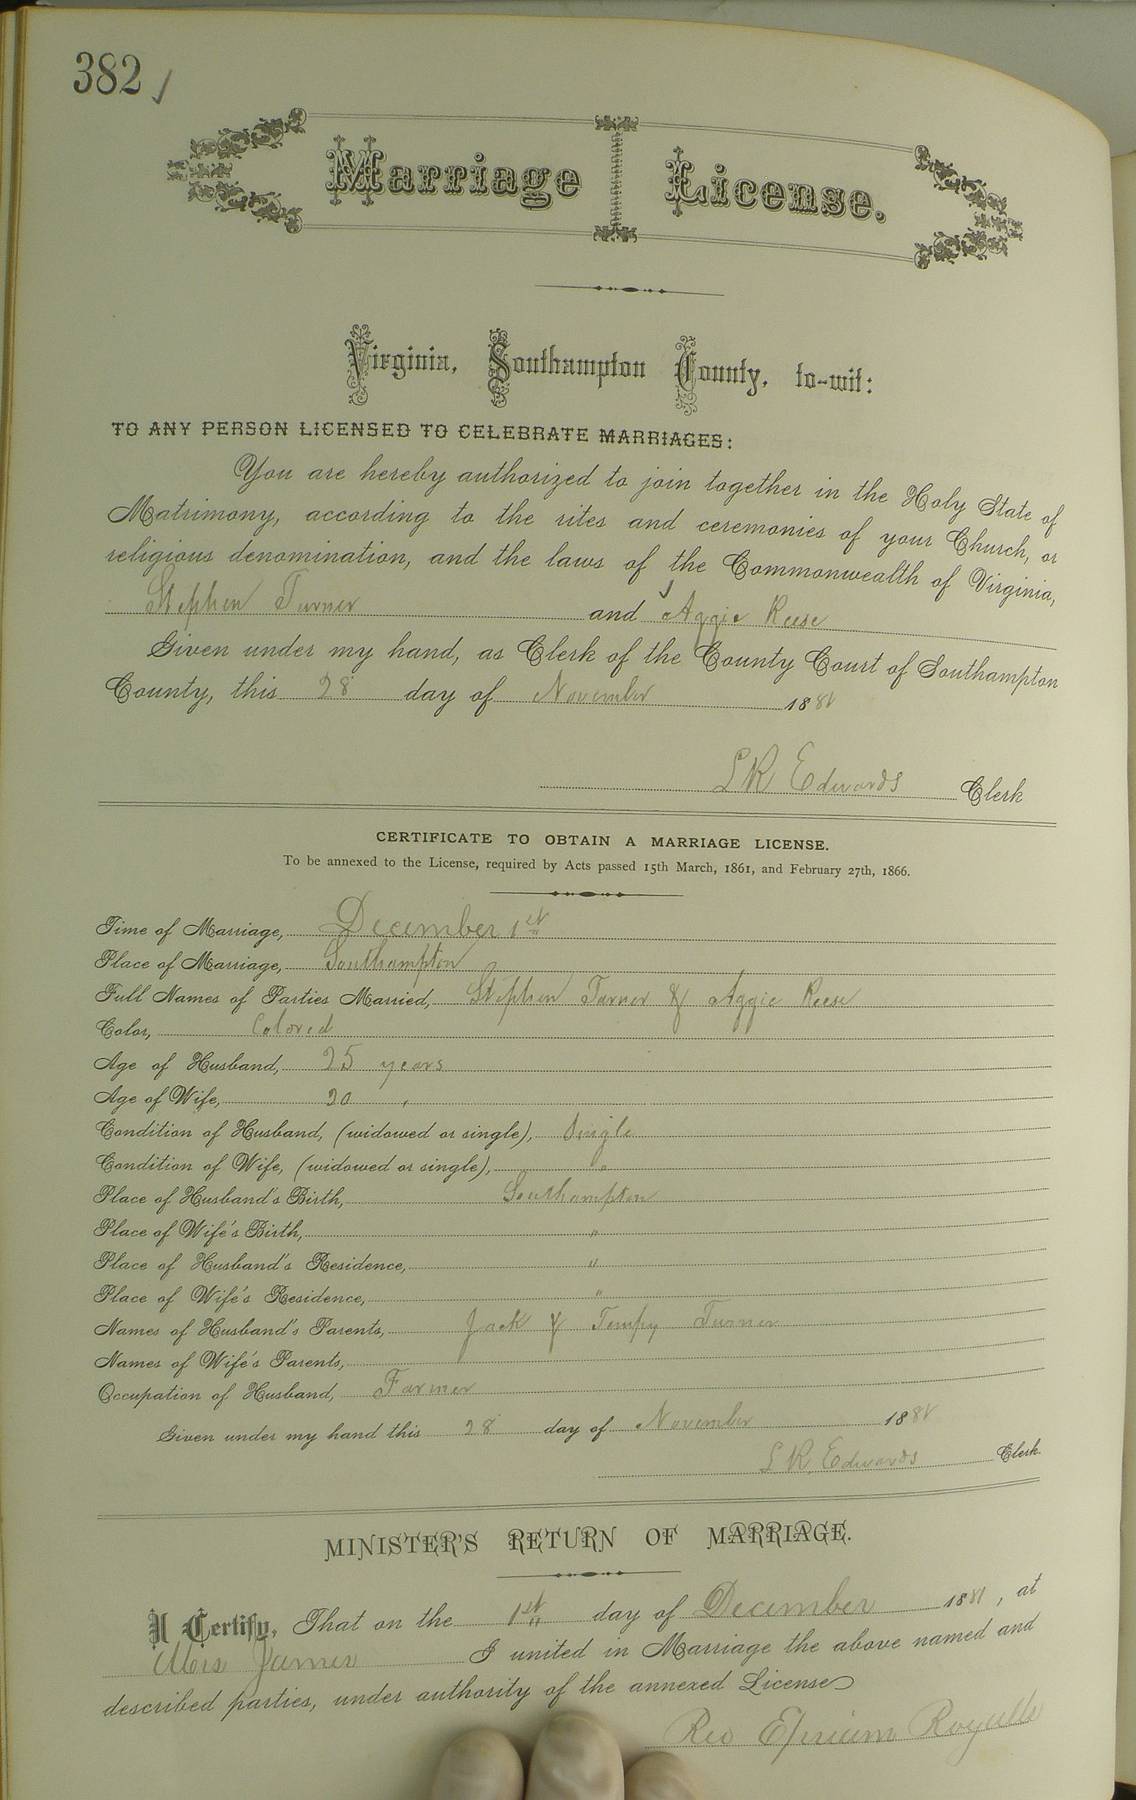 382
Marriage License.
Virginia, Southampton County, to-wit:
TO ANY PERSON LICENSED TO CELEBRATE MARRIAGES:
You are hereby authorized to join together in the Holy State of
Matrimony, according to the rites and ceremonies of your Church, or
religious denomination, and the laws of the Commonwealth of Virginia,
Stephen Turner and Aggie Reese
Given under my hand, as Clerk of the County Court of Southampton
County, this 28 day of November 1881
L R Edwards Clerk
CERTIFICATE TO OBTAIN A MARRIAGE LICENSE.
To be annexed to the License, required by Acts passed 15th March, 1861, and February 27th, 1866.
Time of Marriage, December 1st
Place of Marriage, Southampton
Full Names of Parties Married, Stephen Turner & Aggie Reese
Color, Colored
Age of Husband, 25 years
Age of Wife, 20 "
Condition of Husband, (widowed or single), Single
Condition of Wife, (widowed or single), "
Place of Husband's Birth, Southampton
Place of Wife's Birth, "
Place of Husband's Residence, "
Place of Wife's Residence, "
Names of Husband's Parents, Jack & Tempy Turner
Names of Wife's Parents,
Occupation of Husband, Farmer
Given under my hand this 28 day of November 1881
L R Edwards Clerk.
MINISTER'S RETURN OF MARRIAGE.
I Certify, That on the 1st day of December 1881, at
I united in Marriage the above named and
described parties, under authority of the annexed License
Rev